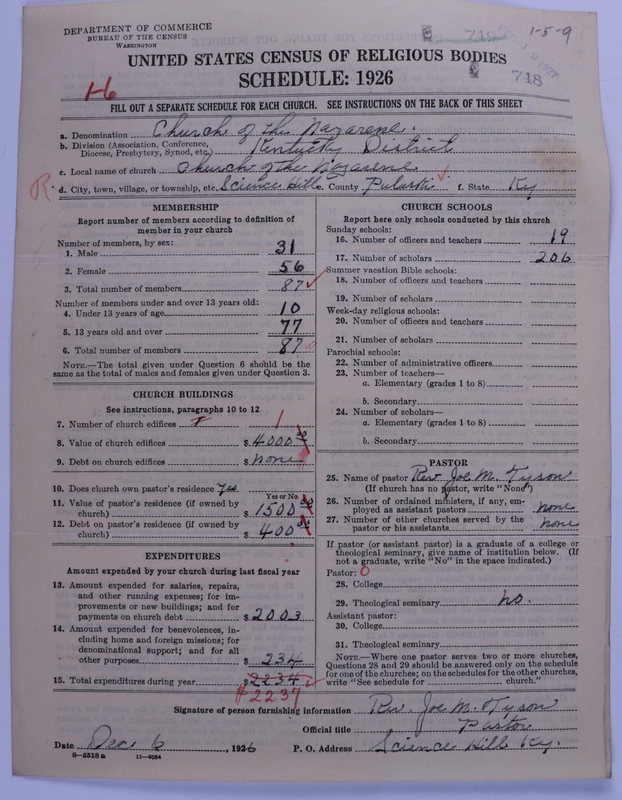 DEPARTMENT OF COMMERCE
BUREAU OF THE CENSUS
WASHINGTON
748
1-5-9
UNITED STATES CENSUS OF RELIGIOUS BODIES
SCHEDULE: 1926
1-6
FILL OUT A SEPARATE SCHEDULE FOR EACH CHURCH. SEE INSTRUCTIONS ON THE BACK OF THIS SHEET
a. Denomination Church of the Nazarene.
b. Division (Association, Conference, Diocese, Presbytery, Synod, etc.) Kentucky District
c. Local name of church Church of the Nazarene
R d. City, town, village, or township, etc. Science Hill e. County Pulaski f. State Ky
MEMBERSHIP
Report number of members according to definition of
member in your church
Number of members, by sex:
1. Male 31
2. Female 56
3. Total number of members 87
Number of members under and over 13 years old:
4. Under 13 years of age 10
5. 13 years old and over 77
6. Total number of members 87
NOTE.—The total given under Question 6 should be
same as the total of males and females given under Question 3.
CHURCH BUILDINGS
See instructions, paragraphs 10 to 12
7. Number of church edifices 1
8. Value of church edifices $ 4000 00
9. Debt on church edifices $ none
10. Does church own pastor's residence? Yes
Yes or No
11. Value of pastor's residence (if owned by
church) $ 1500 00
12. Debt on pastor's residence (if owned by
church) $ 400 00
EXPENDITURES
Amount expended by your church during last fiscal year
13. Amount expended for salaries, repairs,
and other running expenses; for im-
provements or new buildings; and for
payments on church debt $ 2003
14. Amount expended for benevolences, in-
cluding home and foreign missions; for
denominational support; and for all
other purposes $ 234
15. Total expenditures during year $ 2234
$2237
CHURCH SCHOOLS
Report here only schools conducted by this church
Sunday schools:
16. Number of officers and teachers 19
17. Number of scholars 206
Summer vacation Bible schools:
18. Number of officers and teachers
19. Number of scholars
Week-day religious schools:
20. Number of officers and teachers
21. Number of scholars
Parochial schools:
22. Number of administrative officers
23. Number of teachers—
a. Elementary (grades 1 to 8)
b. Secondary
24. Number of scholars—
a. Elementary (grades 1 to 8)
b. Secondary
PASTOR
25. Name of pastor Rev Joe M. Tyson
(If church has no pastor, write "None")
26. Number of ordained ministers, if any, em-
ployed as assistant pastors none
27. Number of other churches served by the
pastor or his assistants none
If pastor (or assistant pastor) is a graduate of a college or
theological seminary, give name of institution below. (If
not a graduate, write "No" in the space indicated.)
Pastor: 0
28. College
29. Theological seminary no.
Assistant pastor:
30. College
31. Theological seminary
NOTE.—Where one pastor serves two or more churches,
Questions 28 and 29 should be answered only on the schedule
for one of the churches; on the schedules for the other churches,
write "See schedule for church."
Signature of person furnishing information Rev. Joe M. Tyson
Official title Pastor
Date Dec 6, 1926 P. O. Address Science Hill Ky.
9—5518 a 11—9054